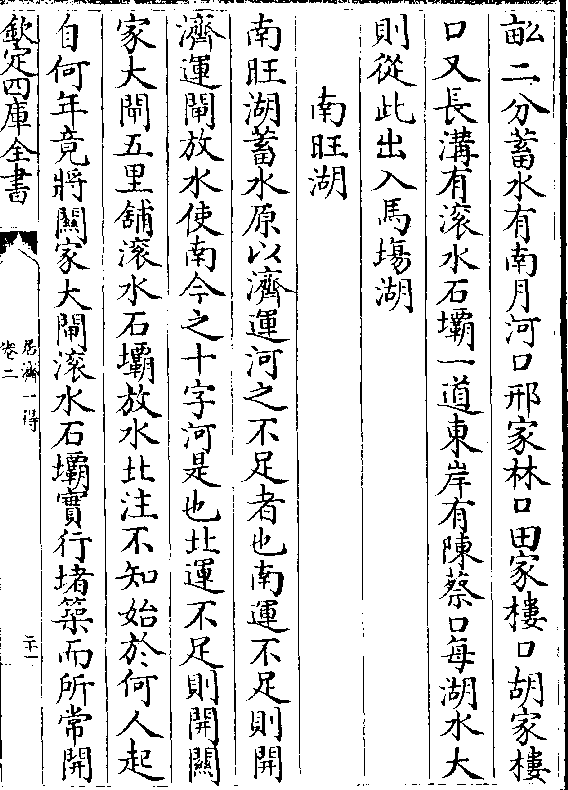 畝二分蓄水有南月河口邢家林口田家樓口胡家樓
口又長溝有滚水石壩一道東岸有陳蔡口每湖水大
則從此出入馬塲湖
南旺湖
南旺湖蓄水原以濟運河之不足者也南運不足則開
濟運閘放水使南今之十字河是也北運不足則開關
家大閘五里舖滚水石壩放水北注不知始於何人起
自何年竟將關家大閘滚水石壩實行堵築而所常開
欽定四庫全書
居濟一得
卷二
二十一